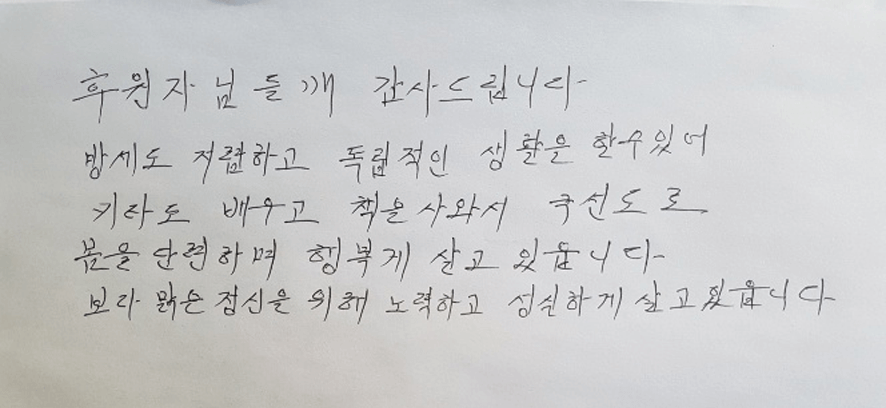 후원자님들깨 감사드립니다
방세도 저렴하고 독립적인 생활을 할수있어
키타도 배우고 책을사와서 국선도로
몸을단련하며 행복게 살고 있읍니다
보다 맑은점신을 위해 노력하고 성실하게 살고있읍니다